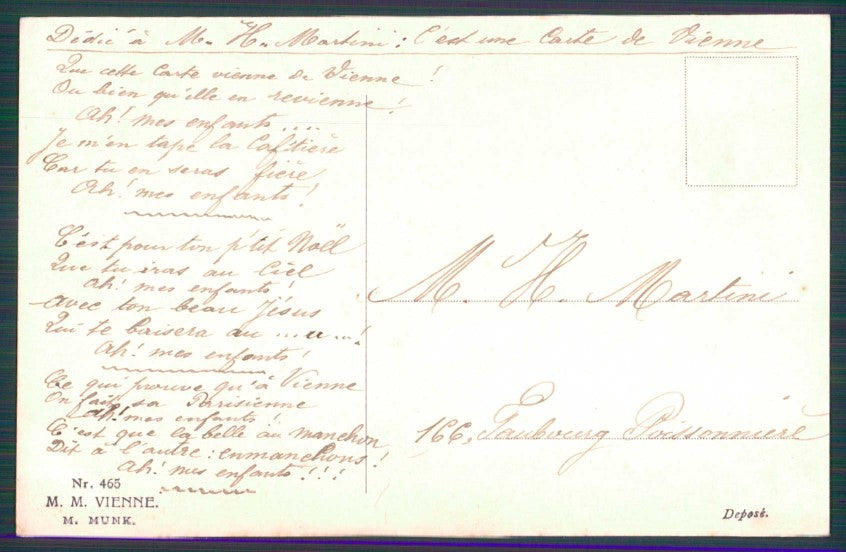 Dédié à M. H. Martini : C'est une Carte de Vienne
Que cette Carte vienne de Vienne !
Ou bien qu'elle en revienne !
Ah! mes enfants....
Je m'en tape la Cafetière
Car tu en seras fière
Ah! mes enfants!
C'est pour ton p'tit Noël
Que tu iras au Ciel
Ah! mes enfants!
avec ton beau Jésus
Qui te baisera au ... u...!
Ah! mes enfants!
Ce qui prouve qu'à Vienne
On fait sa Parisienne
Ah! mes enfants!
C'est que la belle au manchon
Dit à l'autre : enmanchons!
Ah! mes enfants!!!
Nr. 465
M. M. VIENNE.
M. MUNK.
M. H. Martini
166, Faubourg Poissonnière
Deposé.